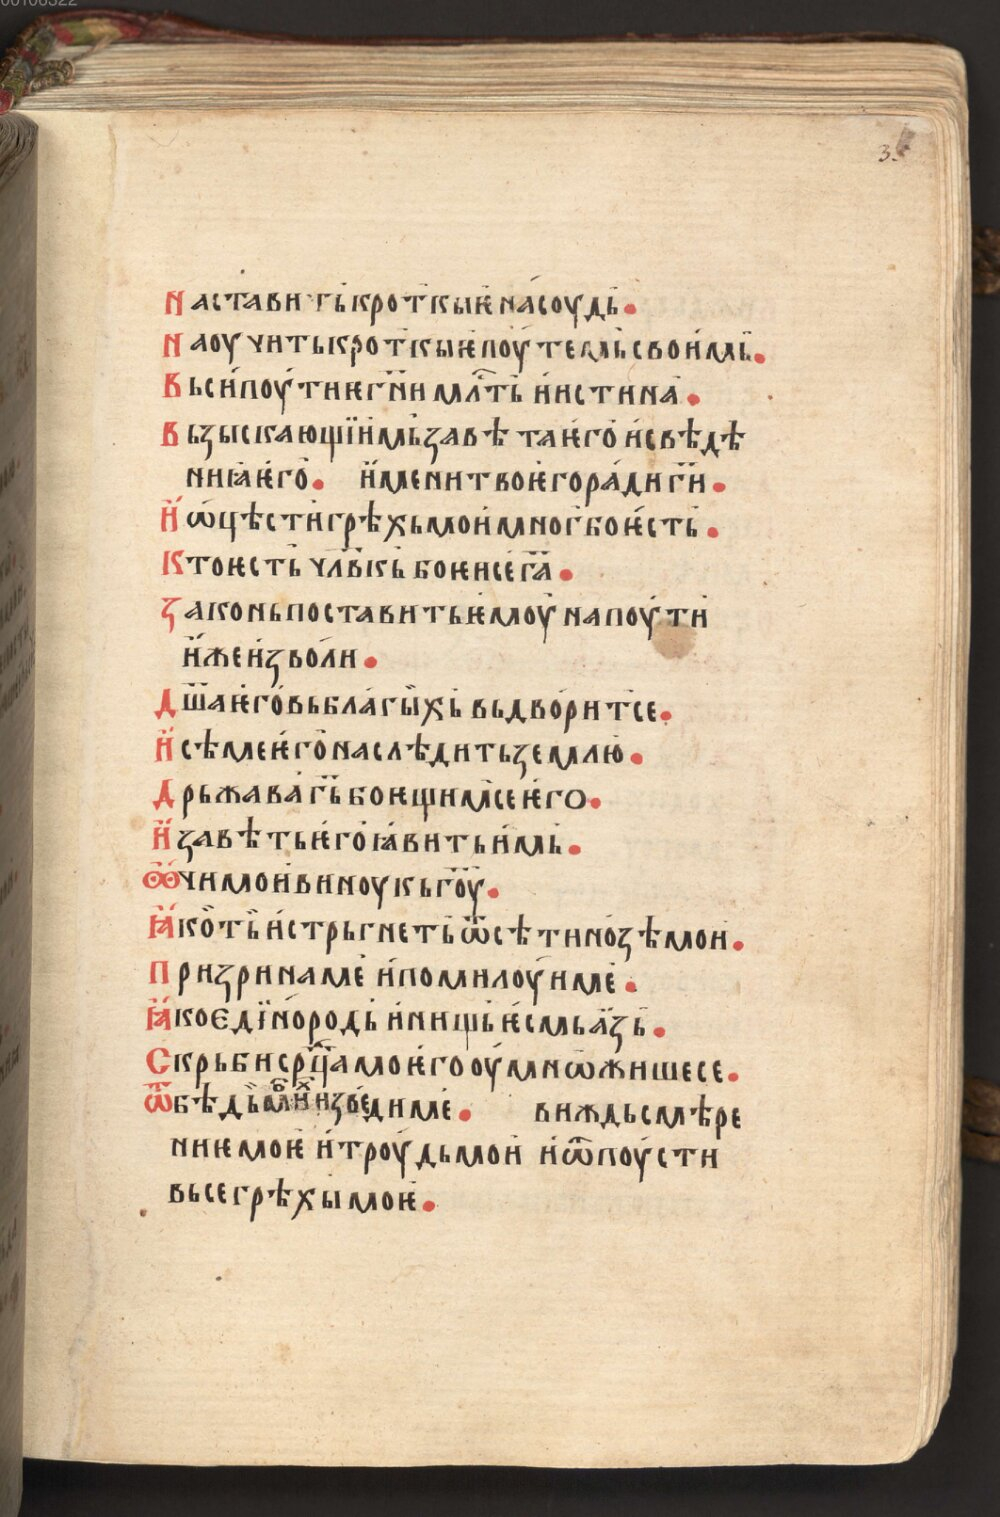 35
Наставить кроткыѥ на соудь.
Наоучить кроткыѥ поутемь своимь.
Вьси поутиѥ гн҃и млⷭ҇ть и истина.
Вьзыскающїимь завѣта ѥго и свѣдѣ
ниꙗ ѥго. имени твоѥго ради гп҃и.
И ѡцѣсти грѣхь мои многь бо ѥсть.
Кто ѥсть чл҃вкь боѥи се г҃а.
Законь поставить ѥмоу на поути
иже изволи.
Дш҃а ѥго вь благыхь вьдворитсе.
И сѣме ѥго наслѣдить землю.
Дрьжава г҃ь боѥщимсе ѥго.
И завѣть ѥго ꙗвить имь.
Ѻчи мои виноу кь г҃оу.
Ꙗко ть истрьгнеть ѿ сѣти нозѣ мои.
Призри на ме и помилоуи ме.
Ꙗко єдїнородь и нищь ѥсмь азь.
Скрьби срⷣца моѥго оумнѡжише се.
Ѿ бѣдь мⷯои изведи ме. виждь смѣре
ниѥ моѥ и троудь мои и ѿпоусти
вьсе грѣхы моѥ.